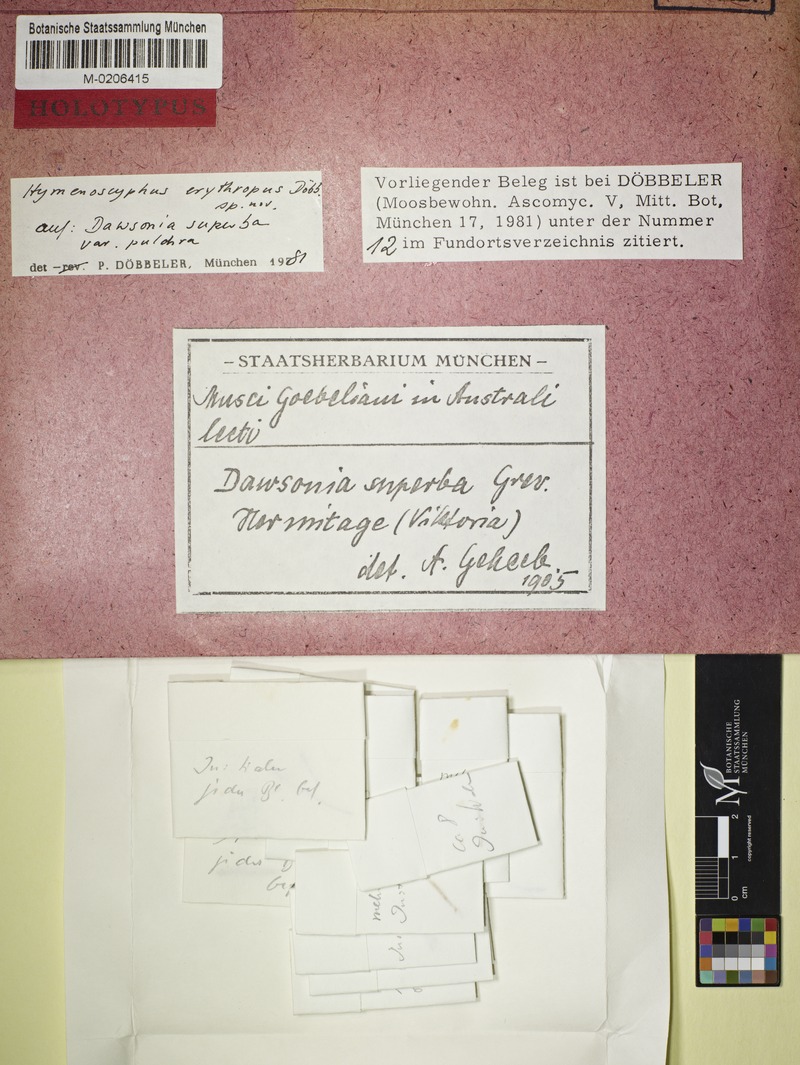 Botanische Staatssammlung München
M-0206415
HOLOTYPUS
Hymenoscyphus erythropus Döbb.
sp. nov.
auf: Dawsonia superba
var. pulchra
det rev. P. DÖBBELER, München 1981
Vorliegender Beleg ist bei DÖBBELER
(Moosbewohn. Ascomyc. V, Mitt. Bot,
München 17, 1981) unter der Nummer
12 im Fundortsverzeichnis zitiert.
– STAATSHERBARIUM MÜNCHEN –
Musci Goebeliani in Australi
lecti
Dawsonia superba Grev.
Hermitage (Viktoria)
det. A. Geheeb.
1905
BOTANISCHE
STAATSSAMMLUNG
MÜNCHEN
copyright reserved
0 1 2
cm
ca 8